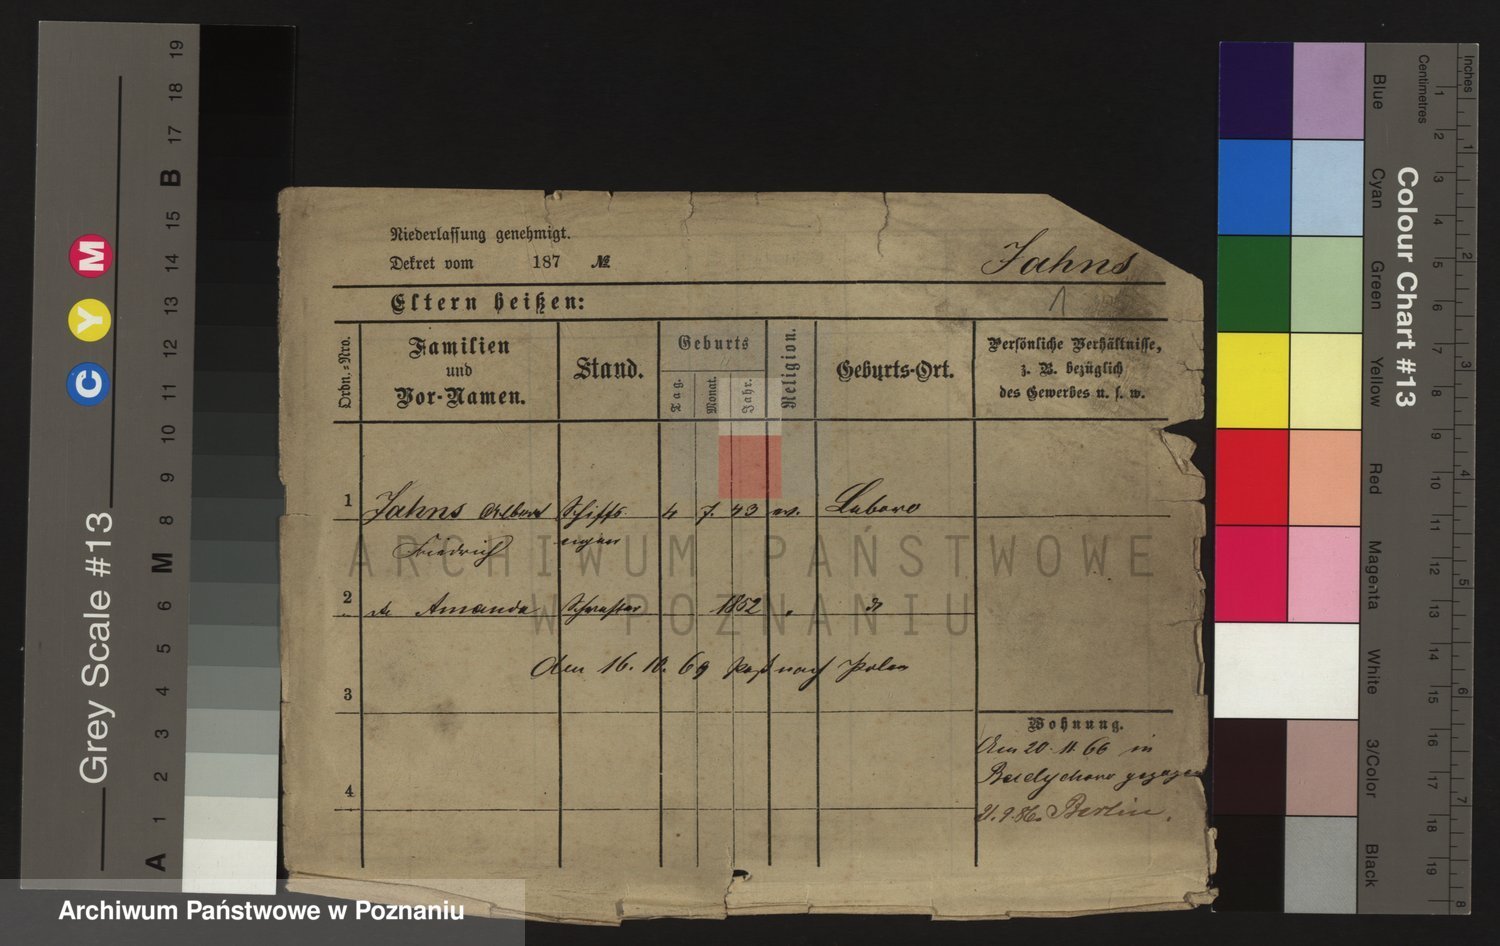 Niederlassung genehmigt.
Dekret vom 187 №
Jahns
1
Eltern heißen:
Ordn.=Nro.
Familien
und
Vor-Namen.
Stand.
Geburts
Tag.
Monat.
Jahr.
Religion.
Geburts-Ort.
Persönliche Verhältnisse,
z. B. bezüglich
des Gewerbes u. s. w.
1 Jahns Albert Schiffs 4 7. 43 ev. Lubowo
Friedrich eigner
2 Amanda Schwester 1852 " do
den 16. 10. 69 Paß nach Polen
3
4
Wohnung.
Am 20. 11. 66 in
gezogen
21. 9. 86. Berlin.
ARCHIWUM PAŃSTWOWE
W POZNANIU
Archiwum Państwowe w Poznaniu
Grey Scale #13
C Y M
A 1 2 3 4 5 6 M 8 9 10 11 12 13 14 15 B 17 18 19
Colour Chart #13
Blue
Cyan
Green
Yellow
Red
Magenta
White
3/Color
Black
Inches
1 2 3 4 5 6 7 8
Centimetres
1 2 3 4 5 6 7 8 9 10 11 12 13 14 15 16 17 18 19